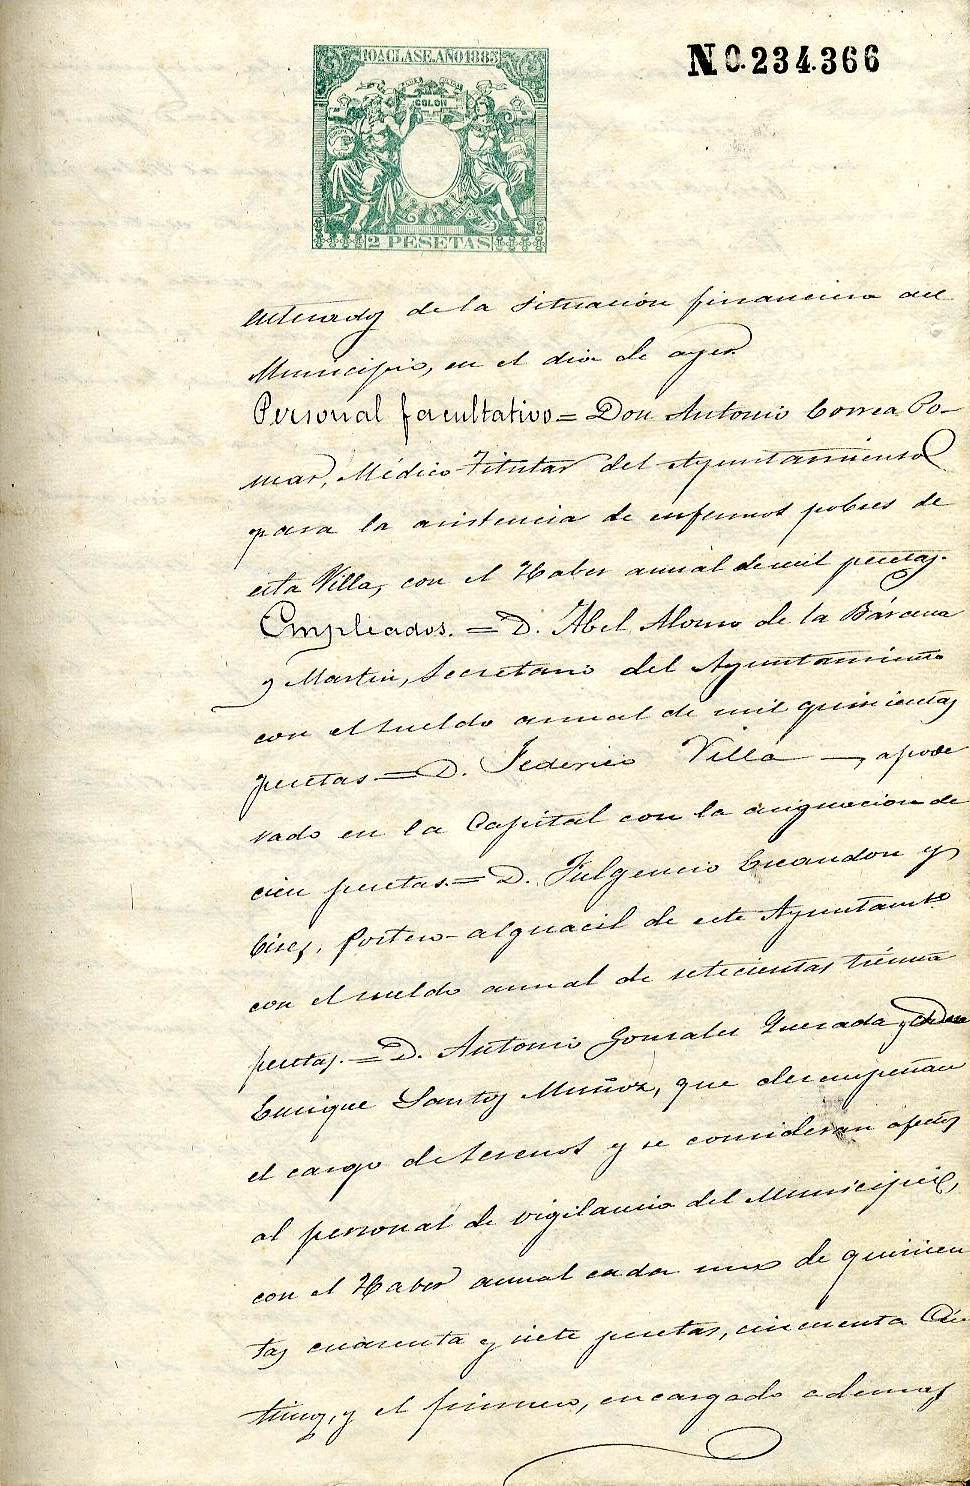 10ª CLASE. AÑO 1885
N 0.234.366
COLON
2 PESETAS
enterados de la situacion financiera del
Municipio, en el dia de ayer.
Personal facultativo = Don Antonio Correa Po-
mar, Médico Titular del Ayuntamiento
para la asistencia de enfermos pobres de
esta Villa, con el Haber anual de mil pesetas.
Empleados. = D. Abel Alonso de la Bárcena
y Martin, Secretario del Ayuntamiento
con el sueldo anual de mil quinientas
pesetas = D. Federico Villa —, apode
rado en la Capital con la asignacion de
cien pesetas. = D. Fulgencio Escandon y
Cires, Portero-alguacil de este Ayuntamto
con el sueldo anual de setecientas treinta
pesetas. = D. Antonio Gonzalez Quesada y
Enrique Santos Muñoz, que desempeñan
el cargo de Serenos y se consideran afectos
al personal de vigilancia del Municipio,
con el Haber anual cada uno de quinien
tas cuarenta y siete pesetas, cincuenta Cén
timos, y el primero, encargado ademas